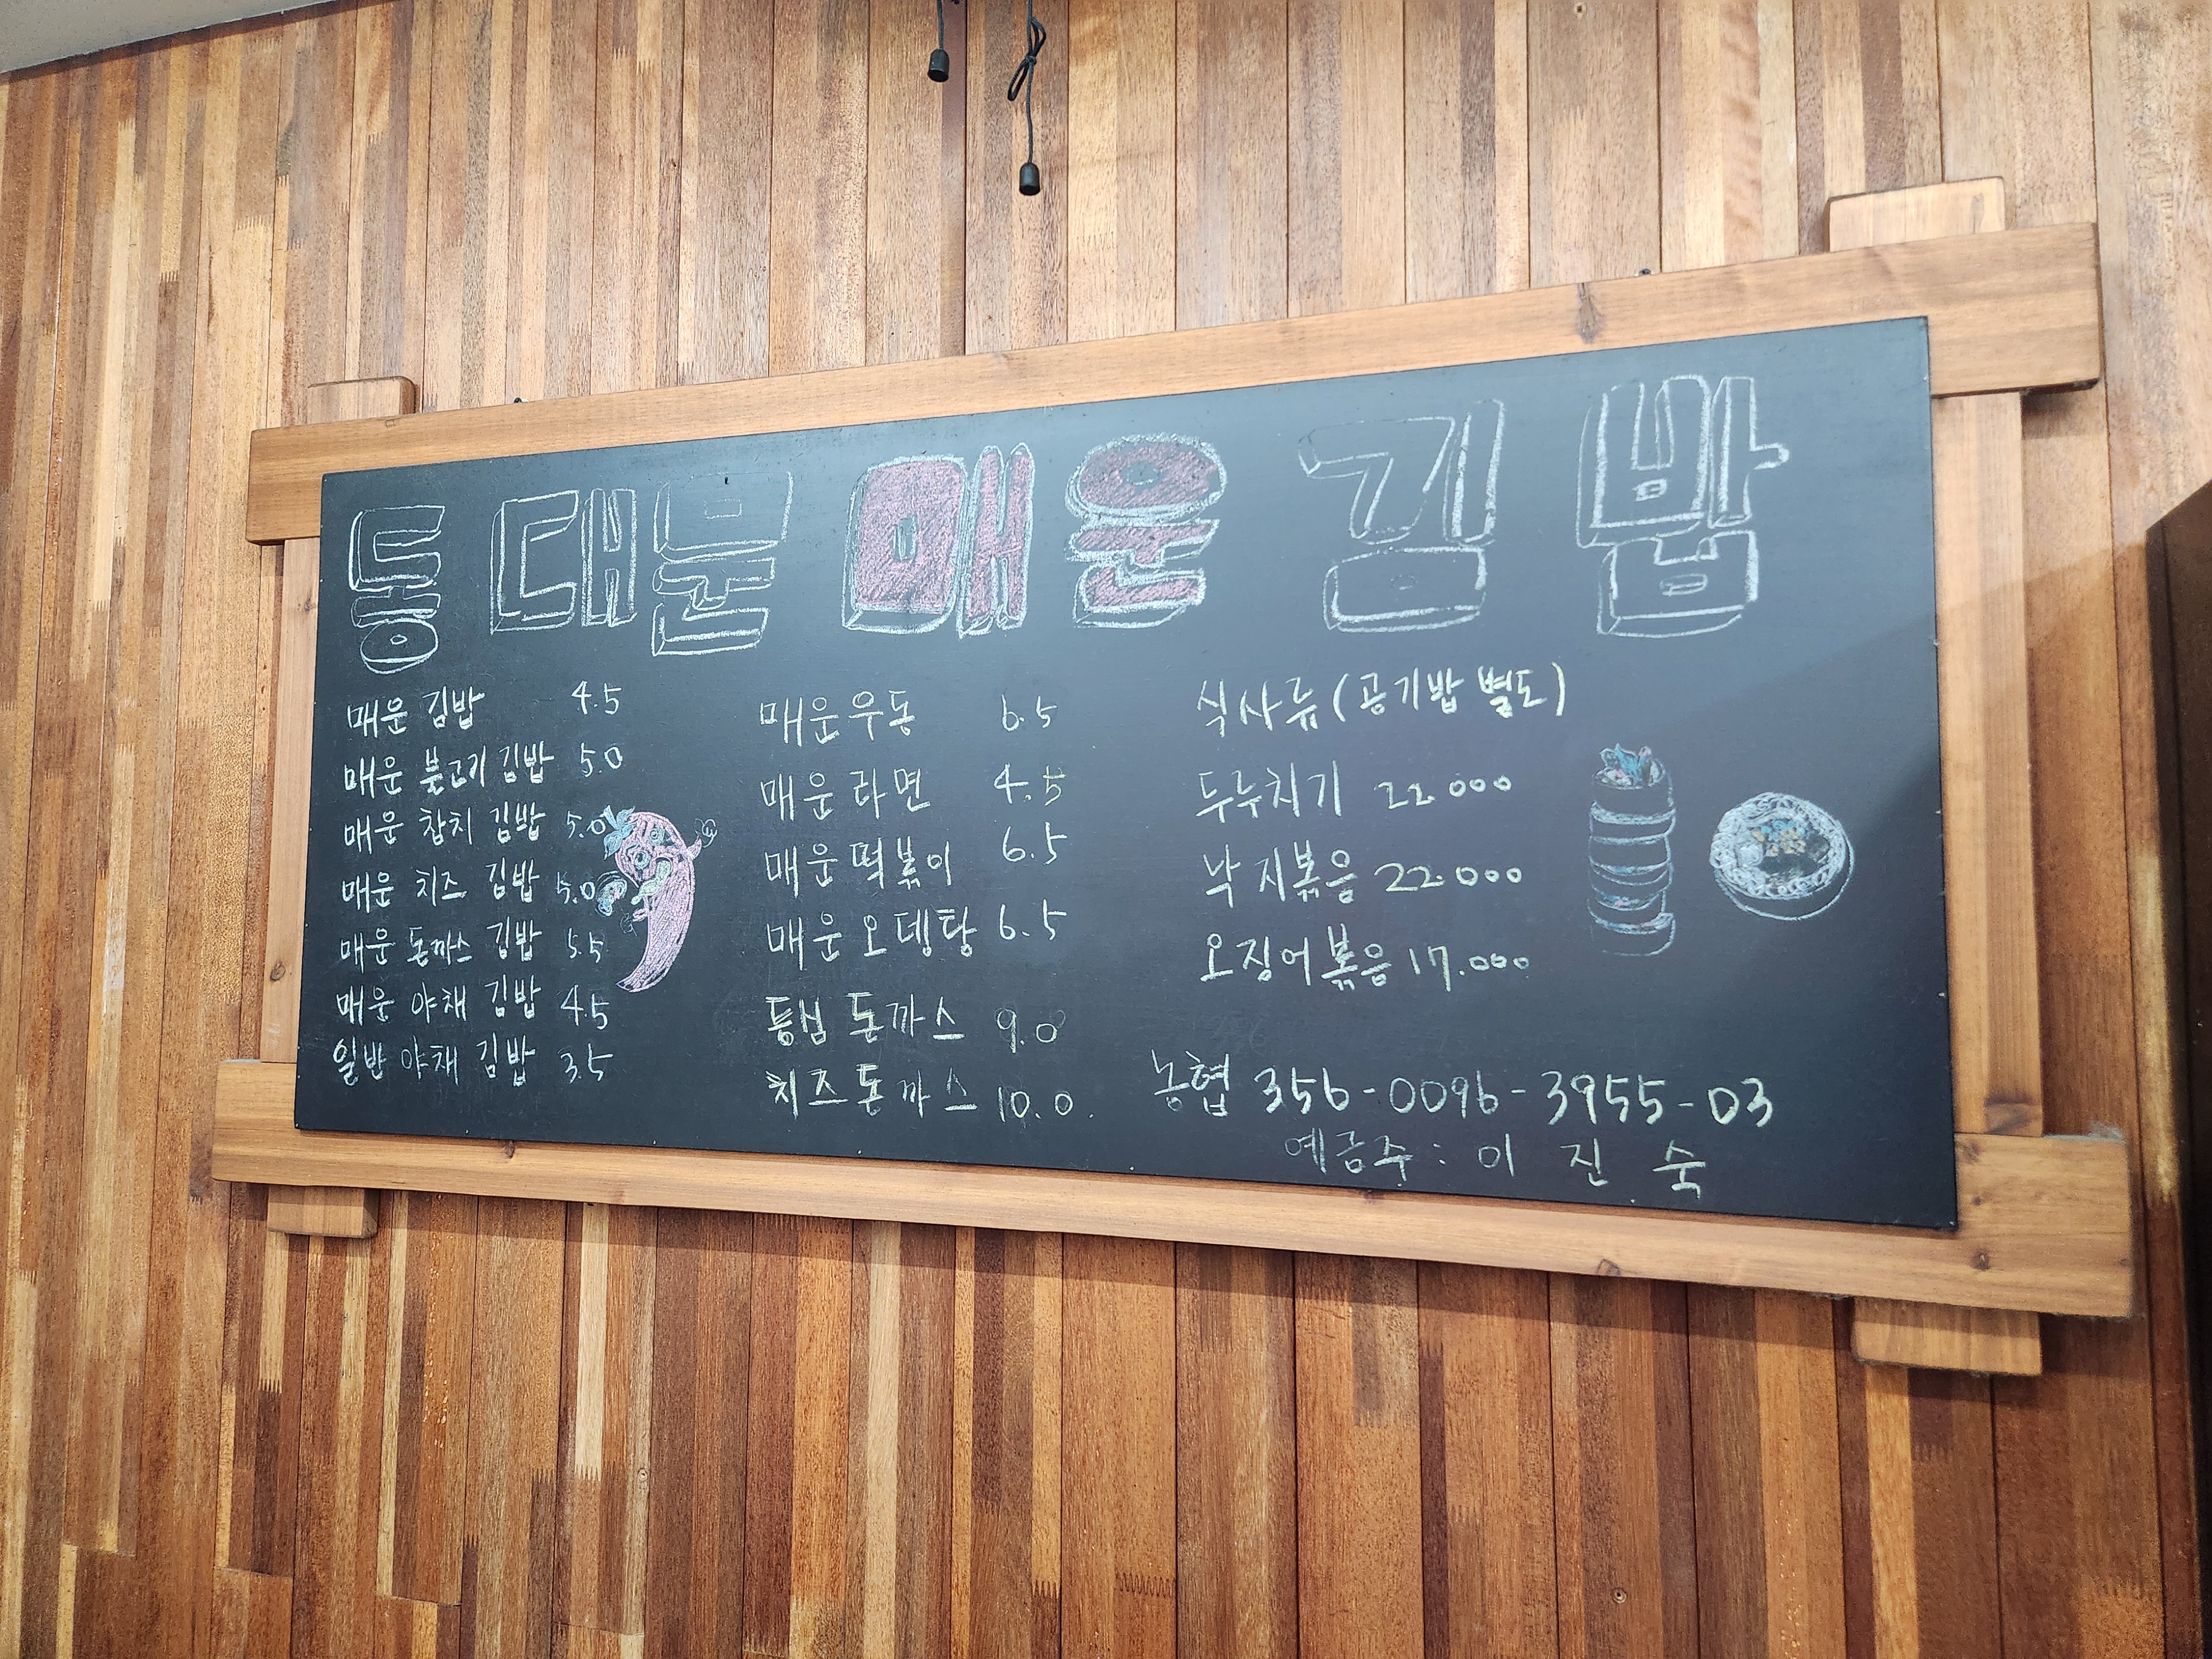 동대문 매운 김밥
매운 김밥 4.5
매운 불고기 김밥 5.0
매운 참치 김밥 5.0
매운 치즈 김밥 5.0
매운 돈까스 김밥 5.5
매운 야채 김밥 4.5
일반 야채 김밥 3.5
매운우동 6.5
매운라면 4.5
매운떡볶이 6.5
매운오뎅탕 6.5
등심 돈까스 9.0
치즈돈까스 10.0.
식사류(공기밥 별도)
두루치기 22.000
낙지볶음 22.000
오징어볶음 17.000
농협 356-0096-3955-03
예금주: 이 진 숙